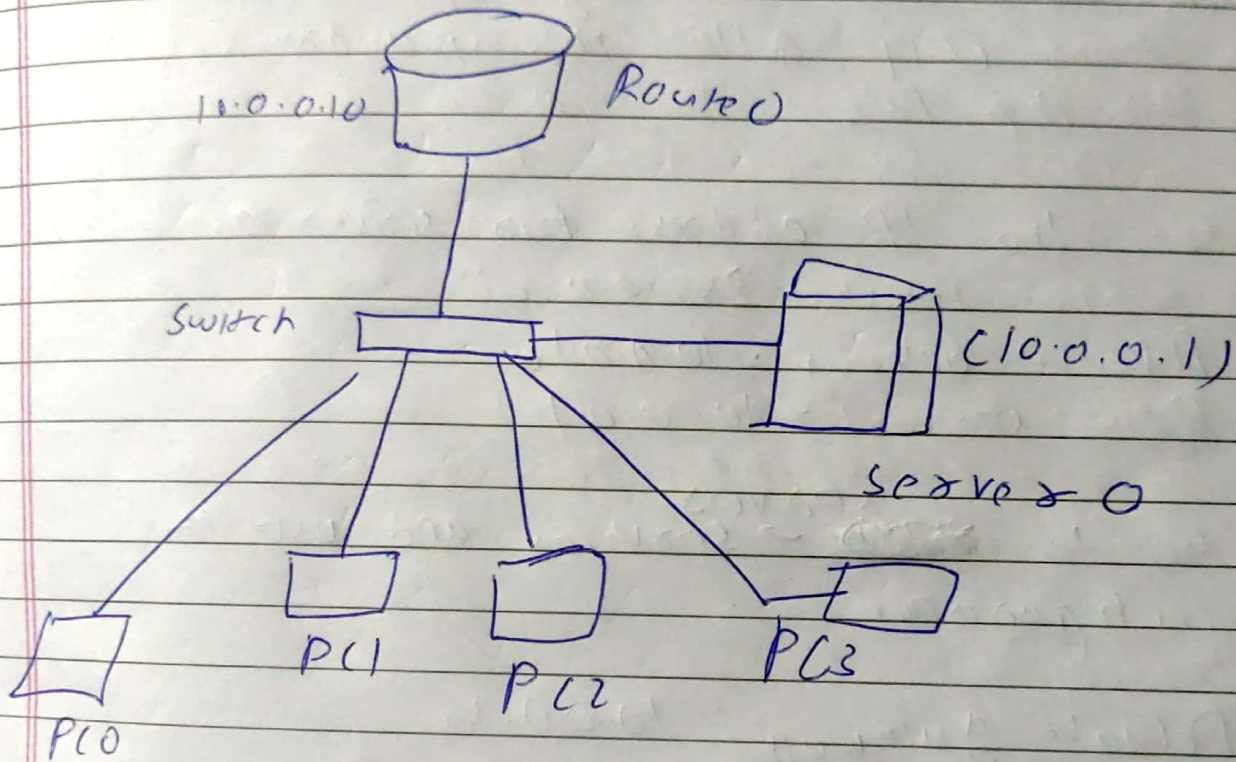 10.0.0.10
Route0
Switch
(10.0.0.1)
server 0
PC1
PC2
PC3
PC0